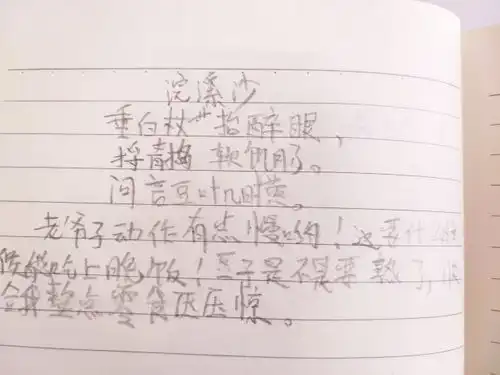 浣溪沙
垂白杖藜抬醉眼,
捋青捣𪎊软饥肠。
问言豆叶几时黄。
老爷子动作有点慢哟!这要什么时
候能吃上晚饭!豆子是不是要熟了,
整点零食压压惊。